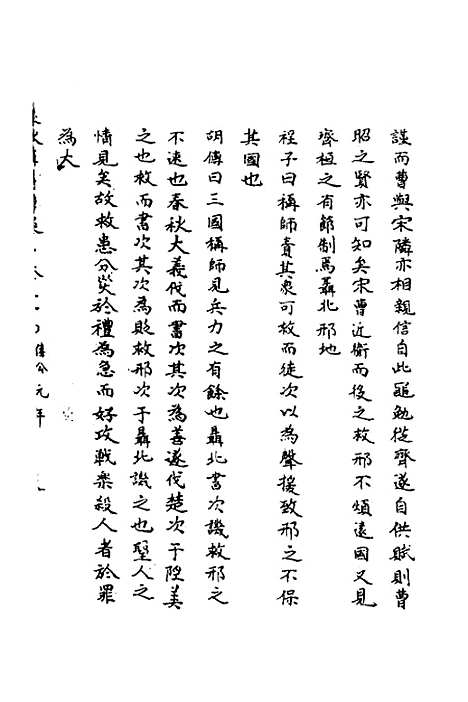 謹而曹與宋隣亦相親信自此黽勉從齊遂自供賦則曹
昭之賢亦可知矣宋曹近衛而後之救邢不煩遠國又見
齊桓之有節制焉聶北邢地
程子曰稱師責其衆可救而徒次以為聲援致邢之不保
其國也
胡傳曰三國稱師見兵力之有餘也聶北書次譏救邢之
不速也春秋大義伐而書次其次為善遂伐楚次于陘美
之也救而書次其次為貶救邢次于聶北譏之也聖人之
情見矣故救患分災於禮為急而好攻戰樂殺人者於罪
為大
僖公元年